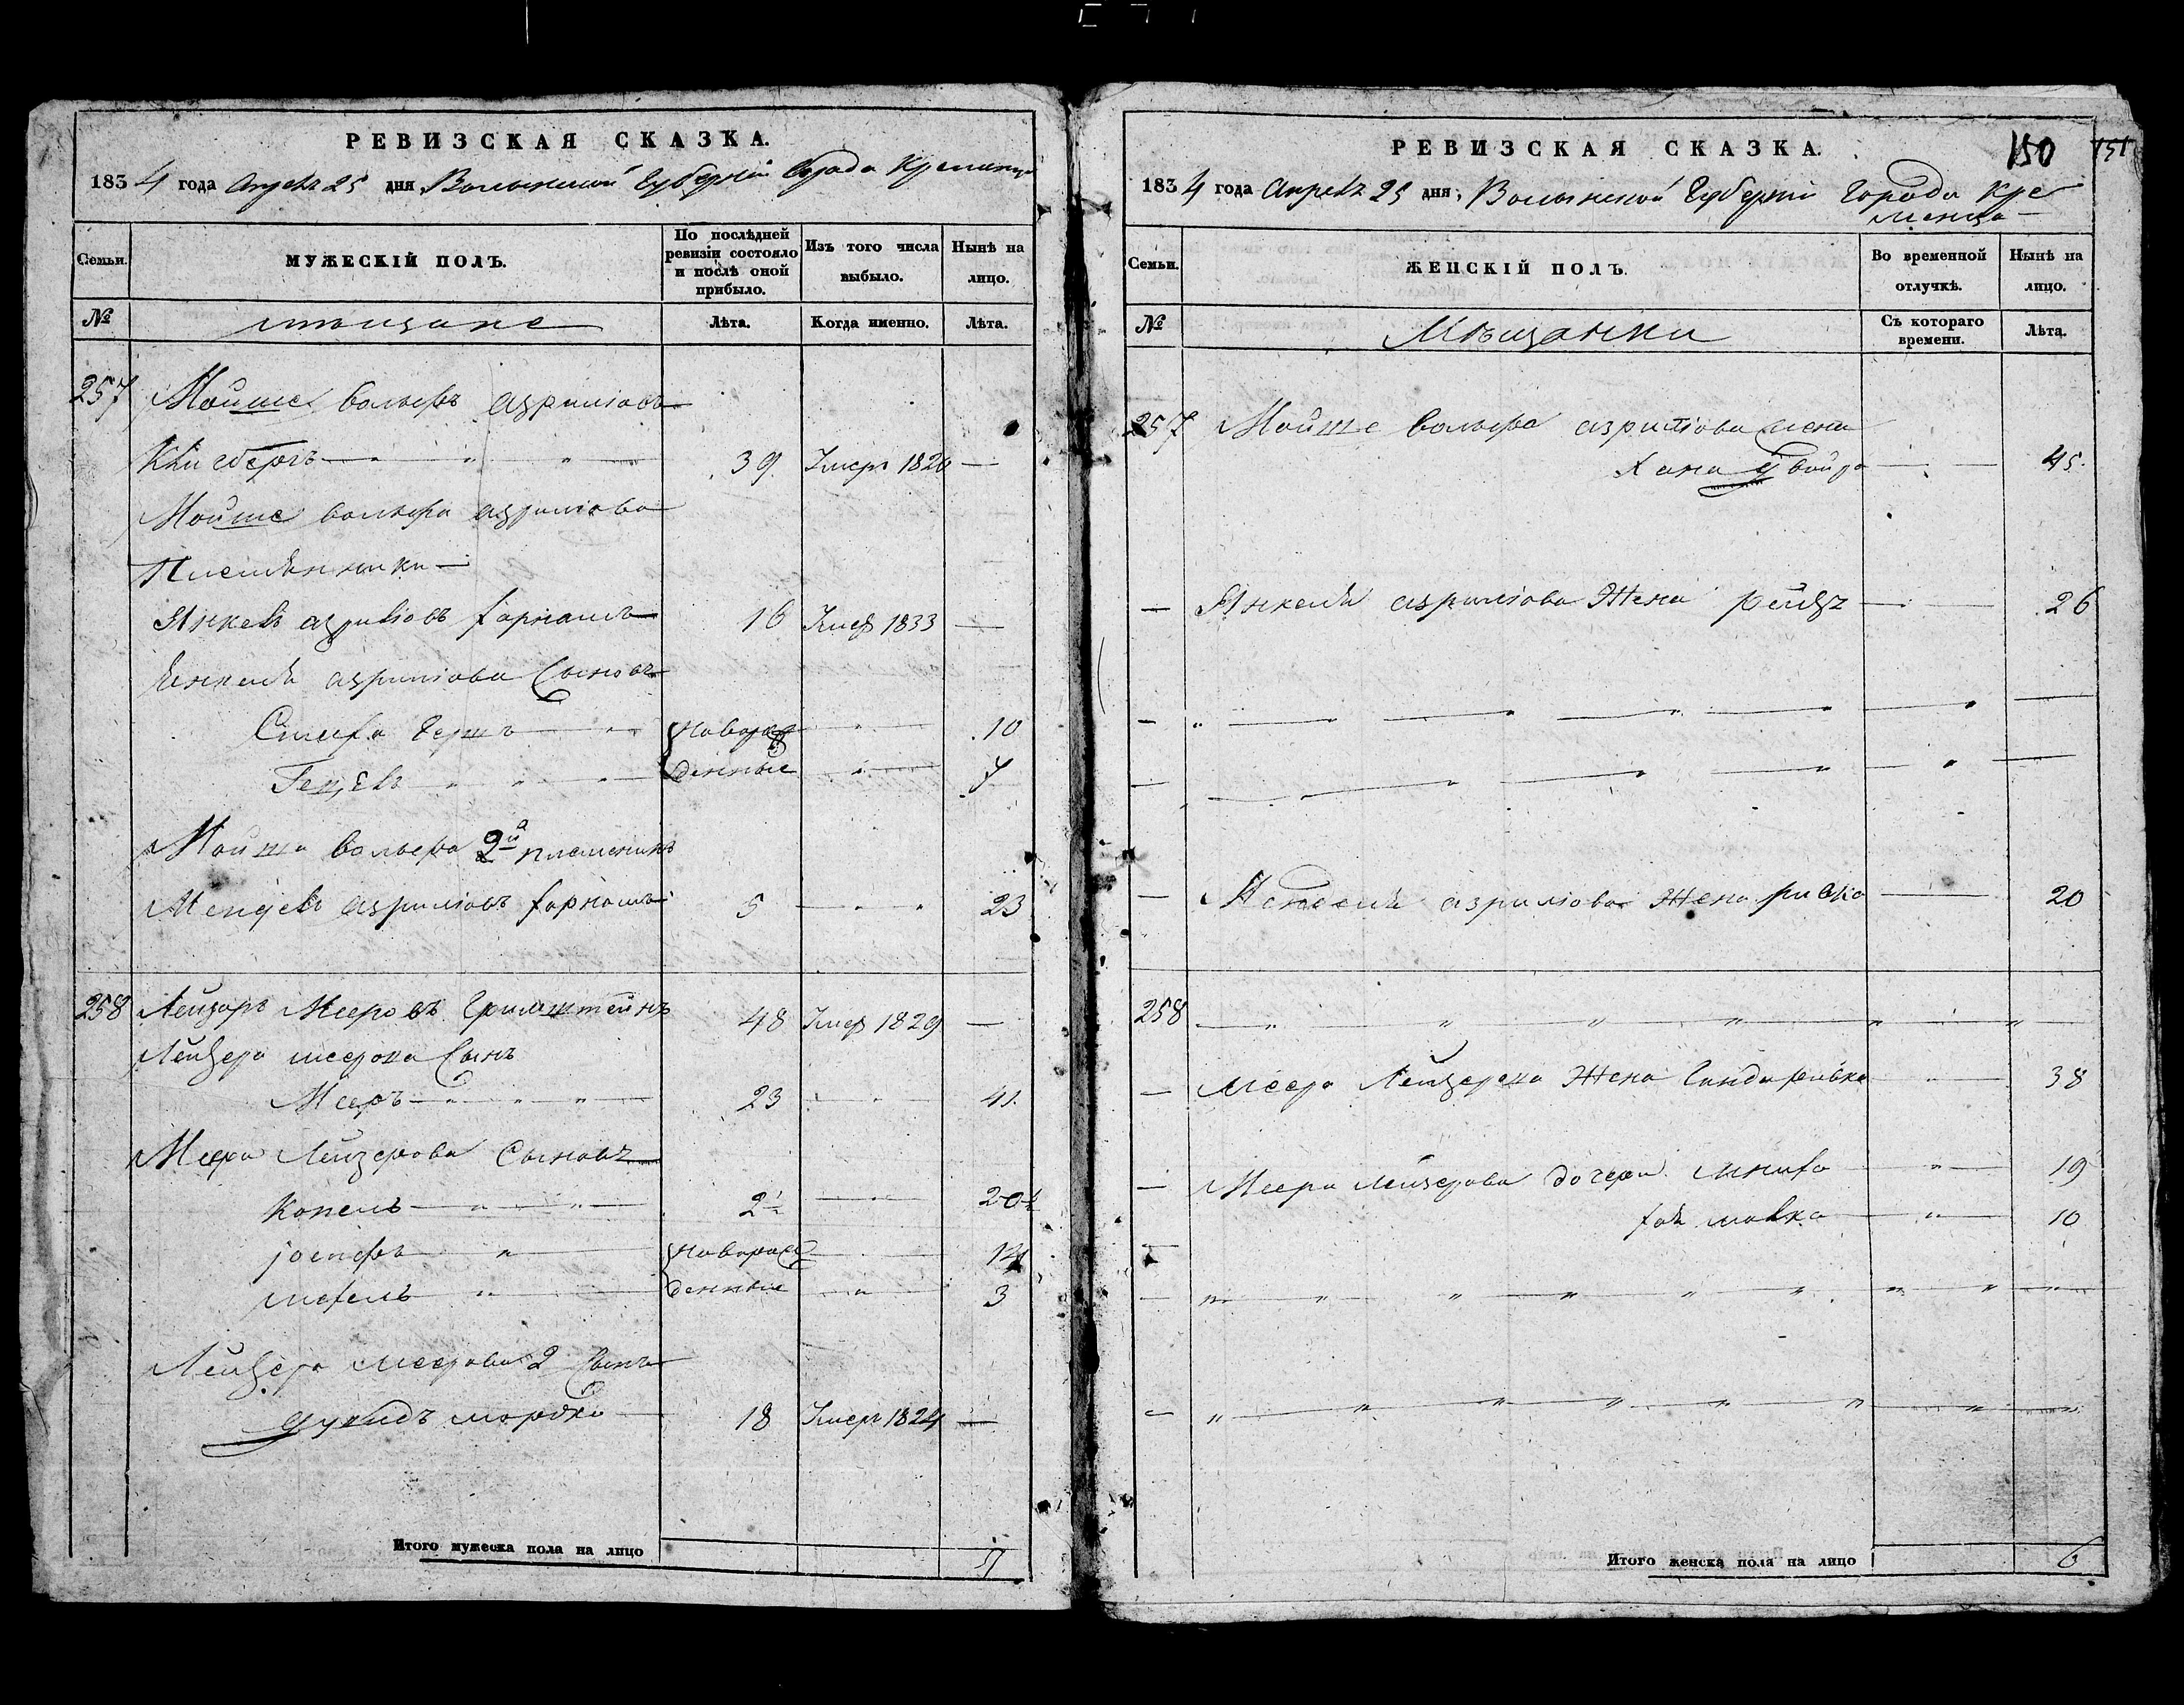 РЕВИЗСКАЯ СКАЗКА.
1834 года Апреля 25 дня, Волынской Губерніи Города Кременца
Семьи.
МУЖЕСКІЙ ПОЛЪ.
По послѣдней ревизіи состояло и послѣ оной прибыло.
Изъ того числа выбыло.
Нынѣ на лицо.
№
мещане
Лѣта.
Когда именно.
Лѣта.
257 Мойше вольфъ азриліовъ
39 Умеръ 1826 —
Мойше вольфа азриліова
Племѣнники —
Янкель азриліовъ 16 Умеръ 1833 —
Янкеля азриліова Сыновъя
Гершъ новорож 10
Гецель денные 7
Мойша вольфа 2й племеникъ
Мендель азриліовъ 5 23
258 Лейзоръ Мееровъ 48 Умеръ 1829 —
Лейзера меерова Сынъ
Мееръ 23 41
Меера Лейзерова Сыновъя
Копель 2½ 20½
Іосифъ новорож
денные 3
Лейзера меерова 2 Сынъ
мордко 18 Умеръ 1824 —
Итого мужеска пола на лицо
150 151
РЕВИЗСКАЯ СКАЗКА.
1834 года Апреля 25 дня, Волынской Губерніи Города Кре
менца
Семьи.
ЖЕНСКІЙ ПОЛЪ.
Во временной отлучкѣ.
Нынѣ на лицо.
№
Мѣщанки
Съ котораго времени.
Лѣта.
257 Мойше вольфа азриліова жена
Хана Двойра 45.
— Янкеля азриліова Жена рейзя 26
— Менделя азриліова Жена ривка 20
258
— Меера Лейзерова Жена ривка 38
— Меера лейзерова дочери 19
малка 10
Итого женска пола на лицо 6